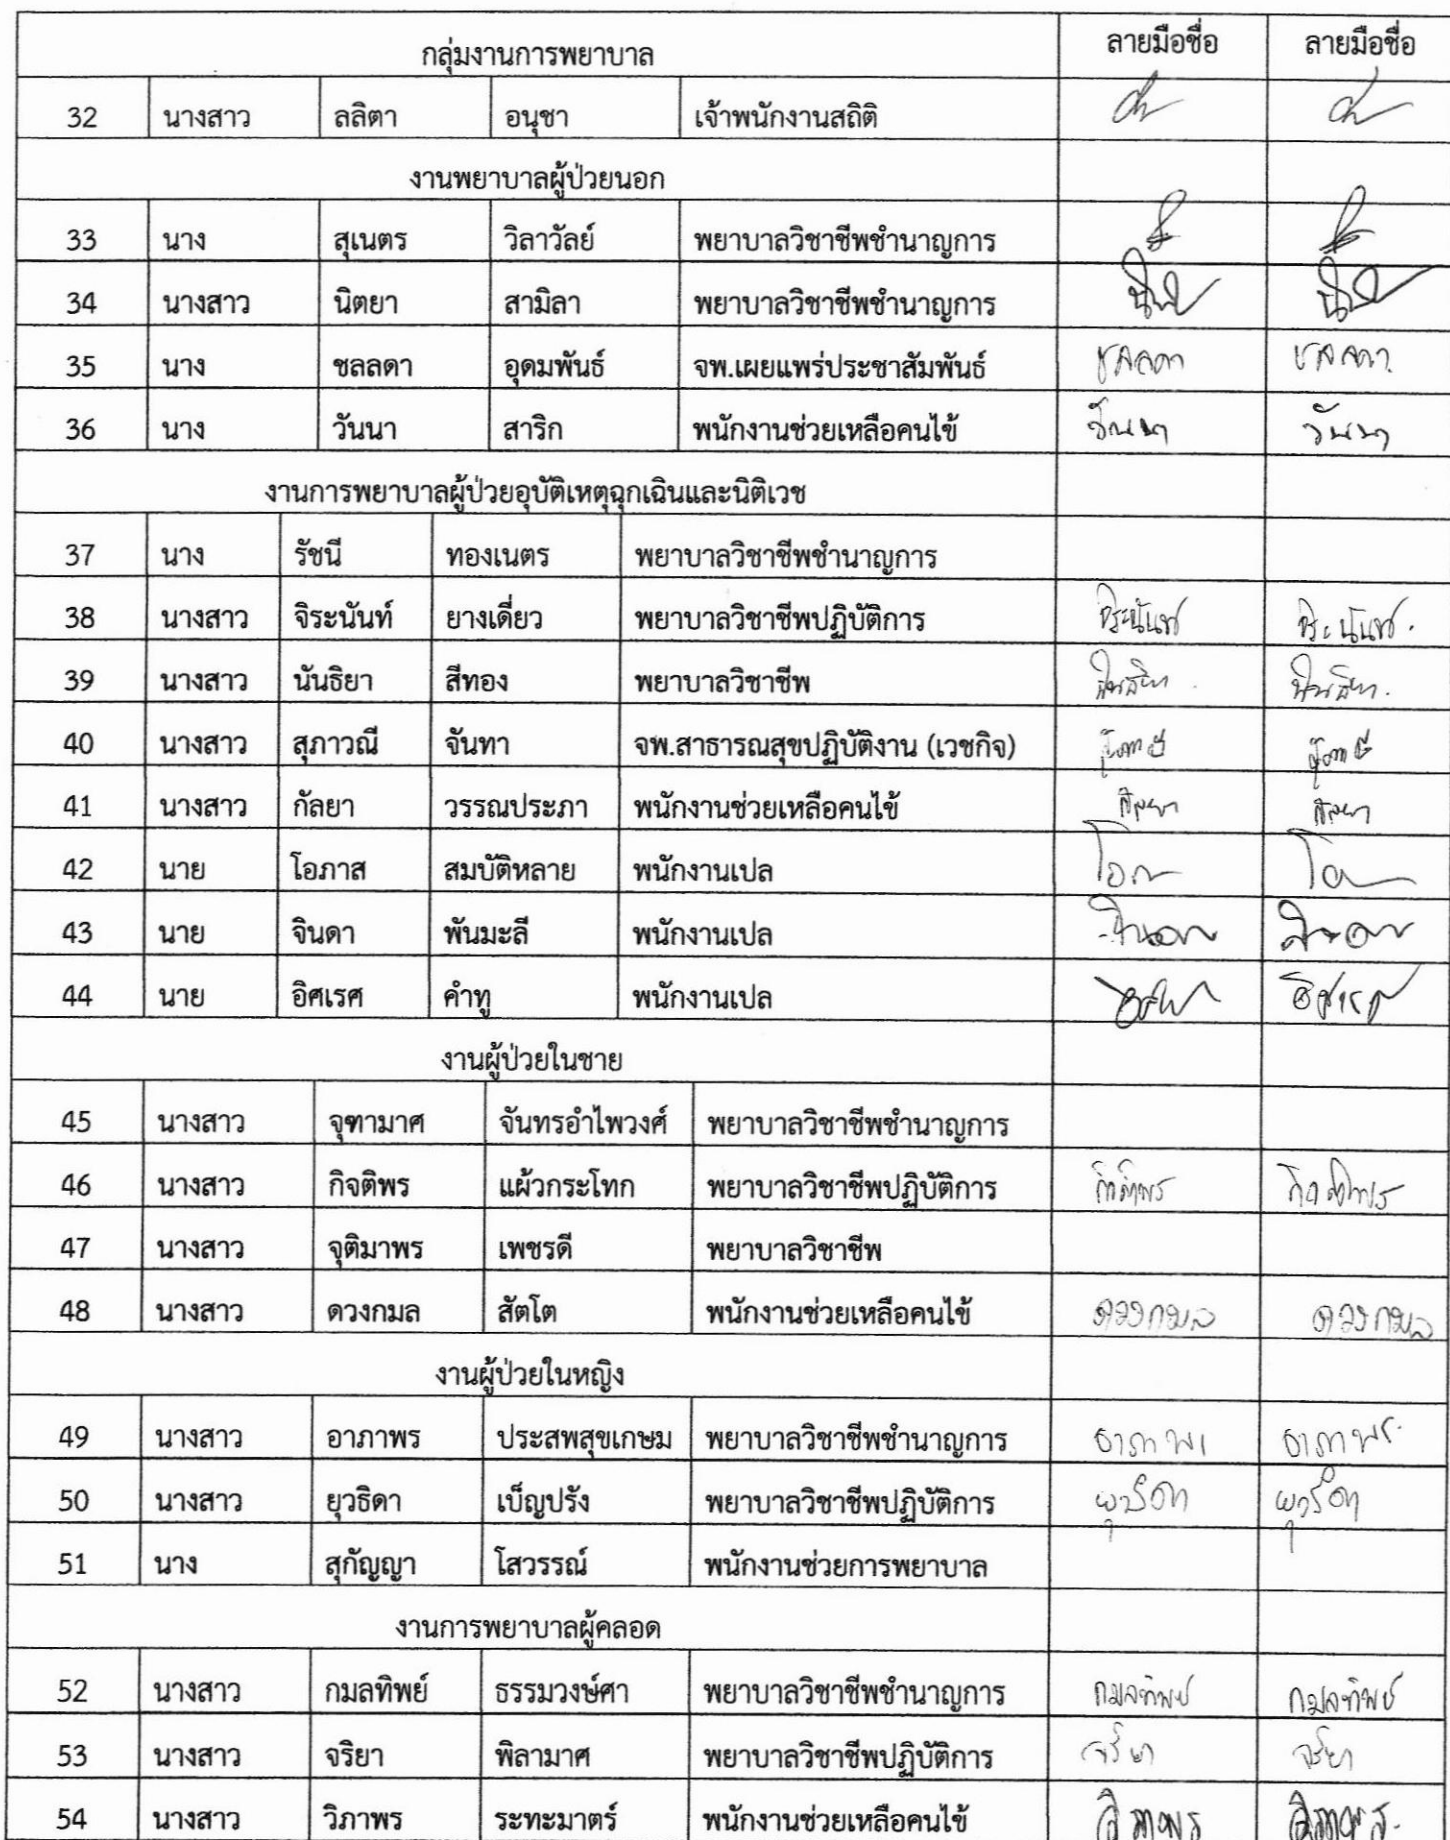 กลุ่มงานการพยาบาล ลายมือชื่อ ลายมือชื่อ
32 นางสาว ลลิตา อนุชา เจ้าพนักงานสถิติ
งานพยาบาลผู้ป่วยนอก
33 นาง สุเนตร วิลาวัลย์ พยาบาลวิชาชีพชำนาญการ
34 นางสาว นิตยา สามิลา พยาบาลวิชาชีพชำนาญการ
35 นาง ชลลดา อุดมพันธ์ จพ.เผยแพร่ประชาสัมพันธ์ ชลลดา ชลลดา
36 นาง วันนา สาริก พนักงานช่วยเหลือคนไข้ วันนา วันนา
งานการพยาบาลผู้ป่วยอุบัติเหตุฉุกเฉินและนิติเวช
37 นาง รัชนี ทองเนตร พยาบาลวิชาชีพชำนาญการ
38 นางสาว จิระนันท์ ยางเดี่ยว พยาบาลวิชาชีพปฏิบัติการ จิระนันท์ จิระนันท์
39 นางสาว นันธิยา สีทอง พยาบาลวิชาชีพ นันธิยา นันธิยา
40 นางสาว สุภาวณี จันทา จพ.สาธารณสุขปฏิบัติงาน (เวชกิจ)
41 นางสาว กัลยา วรรณประภา พนักงานช่วยเหลือคนไข้ กัลยา กัลยา
42 นาย โอภาส สมบัติหลาย พนักงานเปล
43 นาย จินดา พันมะลี พนักงานเปล
44 นาย อิศเรศ คำทู พนักงานเปล
งานผู้ป่วยในชาย
45 นางสาว จุฑามาศ จันทรอำไพวงศ์ พยาบาลวิชาชีพชำนาญการ
46 นางสาว กิจติพร แผ้วกระโทก พยาบาลวิชาชีพปฏิบัติการ กิจติพร กิจติพร
47 นางสาว จุติมาพร เพชรดี พยาบาลวิชาชีพ
48 นางสาว ดวงกมล สัตโต พนักงานช่วยเหลือคนไข้ ดวงกมล ดวงกมล
งานผู้ป่วยในหญิง
49 นางสาว อาภาพร ประสพสุขเกษม พยาบาลวิชาชีพชำนาญการ อาภาพร อาภาพร
50 นางสาว ยุวธิดา เบ็ญปรัง พยาบาลวิชาชีพปฏิบัติการ ยุวธิดา ยุวธิดา
51 นาง สุกัญญา โสวรรณ์ พนักงานช่วยการพยาบาล
งานการพยาบาลผู้คลอด
52 นางสาว กมลทิพย์ ธรรมวงษ์ศา พยาบาลวิชาชีพชำนาญการ กมลทิพย์ กมลทิพย์
53 นางสาว จริยา พิลามาศ พยาบาลวิชาชีพปฏิบัติการ จริยา จริยา
54 นางสาว วิภาพร ระทะมาตร์ พนักงานช่วยเหลือคนไข้ วิภาพร วิภาพร